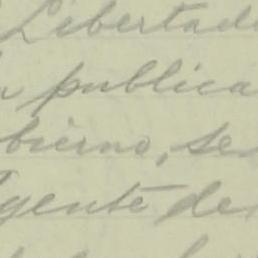 Libertad
publica
bierno, se
gente de